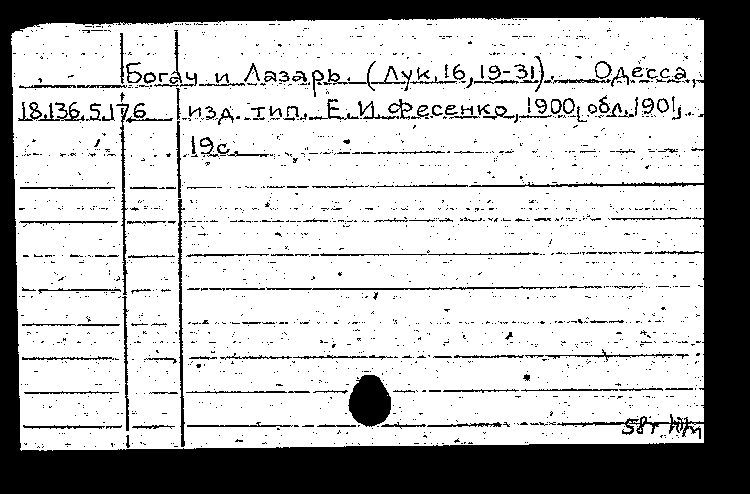 Богач и Лазарь. (Лук. 16, 19-31). Одесса,
18.136.5.176 изд. тип. Е. И. Фесенко, 1900, обл. 1901,
19 с.
58г